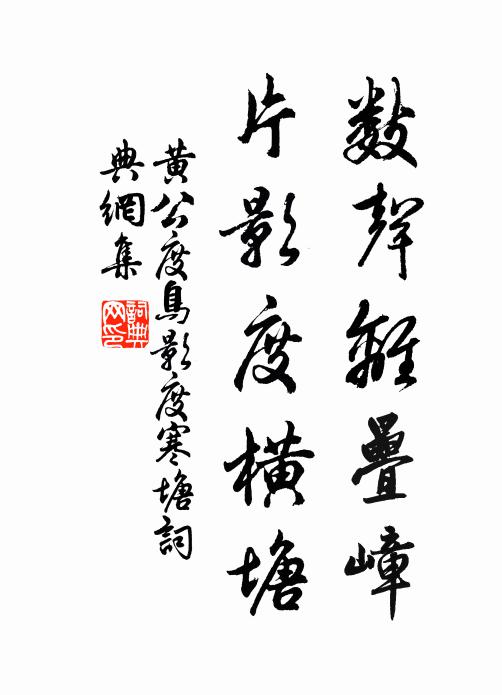 數聲離疊嶂
片影度橫塘
黃公度鳥影度寒塘詞
典網集
詞典
网印